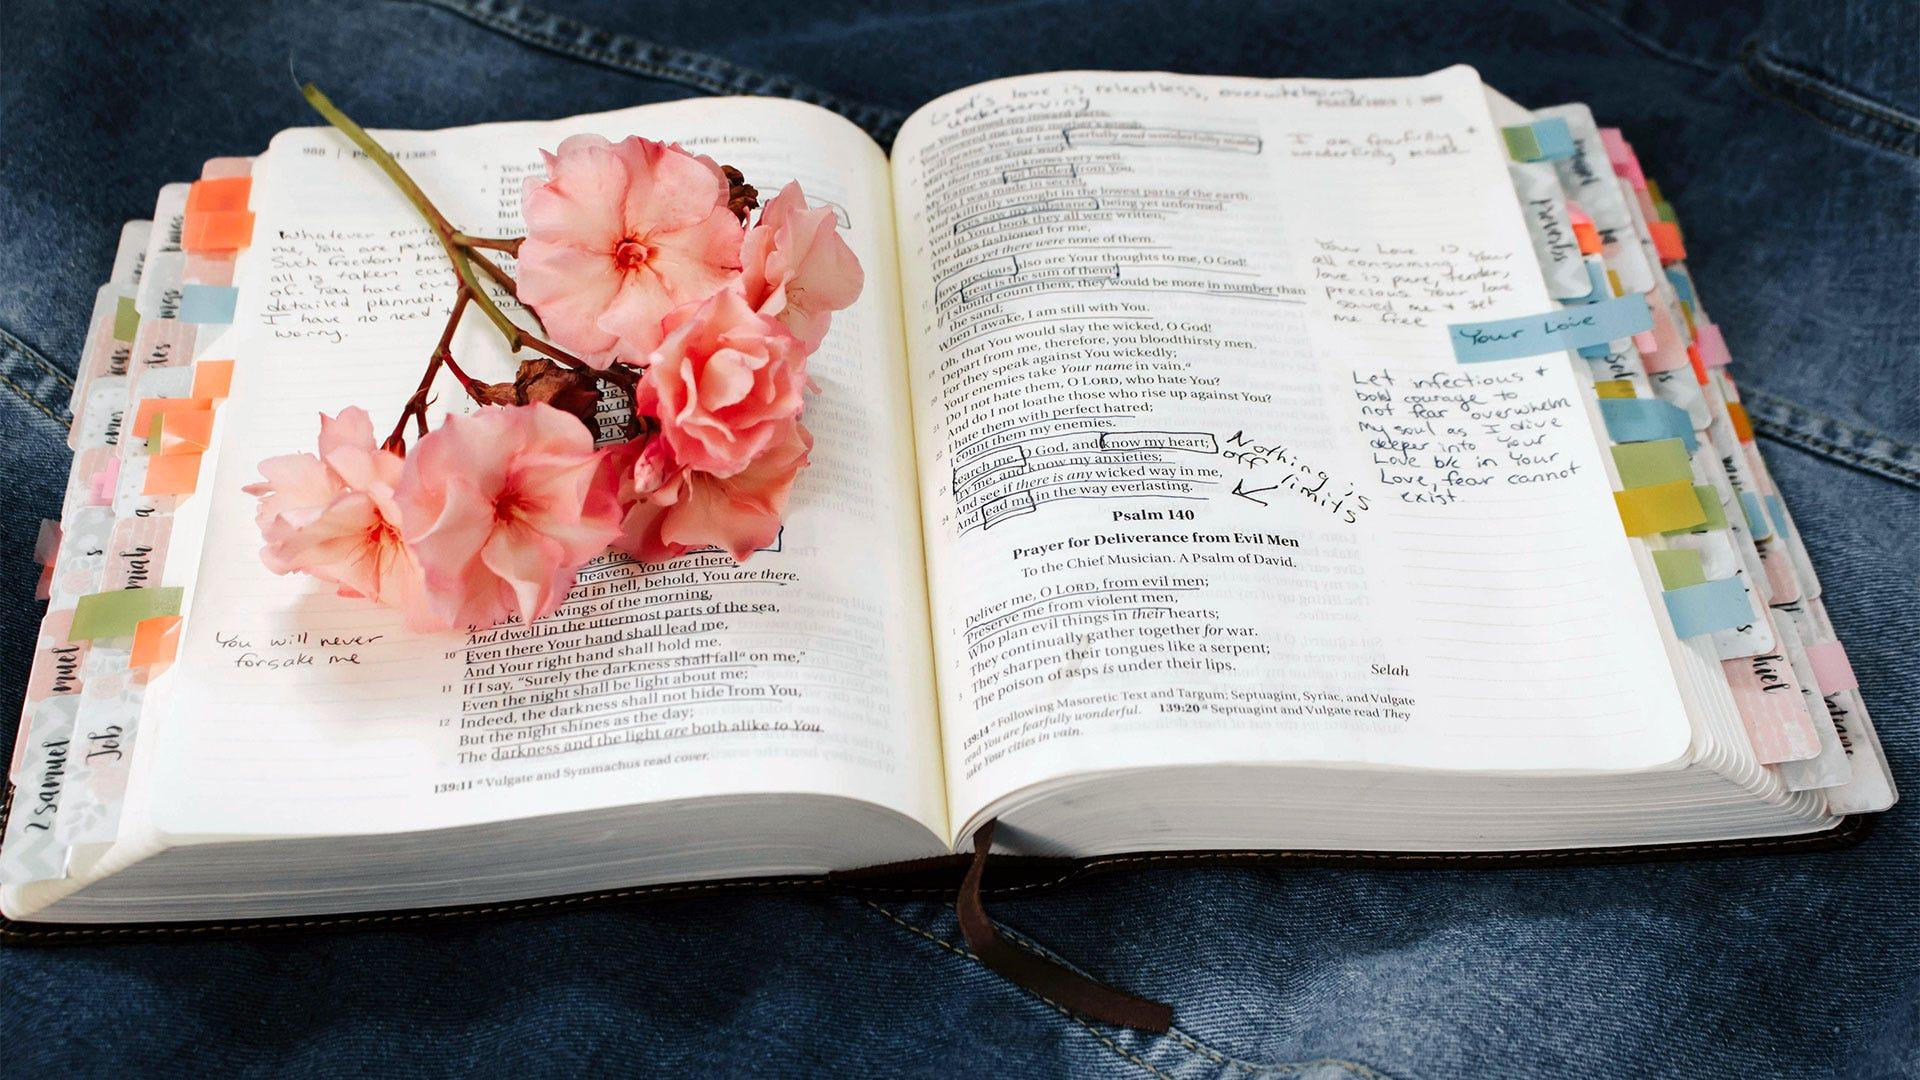 988 | PSALM 138:5
of the LORD,
Yes, the
For
Yet
But
Whatever
me, You are
Such freedom
all is taken care
of. You have
detailed planned.
I have no need
worry.
You will never
forsake me
heaven, You are there;
bed in hell, behold, You are there.
wings of the morning,
And dwell in the uttermost parts of the sea,
10 Even there Your hand shall lead me,
And Your right hand shall hold me.
11 If I say, “Surely the darkness shall fallᵃ on me,”
Even the night shall be light about me;
12 Indeed, the darkness shall not hide from You,
But the night shines as the day;
The darkness and the light are both alike to You.
139:11 ᵃ Vulgate and Symmachus read cover.
God's love is relentless, overwhelming
underserving
You formed my inward parts;
You covered me in my mother's womb.
I will praise You, for I am fearfully and wonderfully made;
Marvelous are Your works,
And that my soul knows very well.
My frame was not hidden from You,
When I was made in secret,
And skillfully wrought in the lowest parts of the earth.
Your eyes saw my substance, being yet unformed.
And in Your book they all were written,
The days fashioned for me,
When as yet there were none of them.
How precious also are Your thoughts to me, O God!
How great is the sum of them!
If I should count them, they would be more in number than
the sand;
When I awake, I am still with You.
Oh, that You would slay the wicked, O God!
Depart from me, therefore, you bloodthirsty men.
For they speak against You wickedly;
Your enemies take Your name in vain.ᵃ
Do I not hate them, O LORD, who hate You?
And do I not loathe those who rise up against You?
I hate them with perfect hatred;
I count them my enemies.
Search me, O God, and know my heart;
Try me, and know my anxieties;
And see if there is any wicked way in me,
24 And lead me in the way everlasting.
Psalm 140
Prayer for Deliverance from Evil Men
To the Chief Musician. A Psalm of David.
Deliver me, O LORD, from evil men;
Preserve me from violent men,
Who plan evil things in their hearts;
They continually gather together for war.
They sharpen their tongues like a serpent;
The poison of asps is under their lips. Selah
139:14 ᵃ Following Masoretic Text and Targum; Septuagint, Syriac, and Vulgate
read You are fearfully wonderful. 139:20 ᵃ Septuagint and Vulgate read They
take Your cities in vain.
I am fearfully +
wonderfully made
Your Love is
all consuming. Your
love is pure, tender,
precious. Your love
saved me + set
me free
Your Love
Let infectious +
bold courage to
not fear overwhelm
my soul as I dive
deeper into Your
Love b/c in Your
Love, fear cannot
exist.
Nothing is
off limits
2 samuel
Job
muel
miah
proverbs